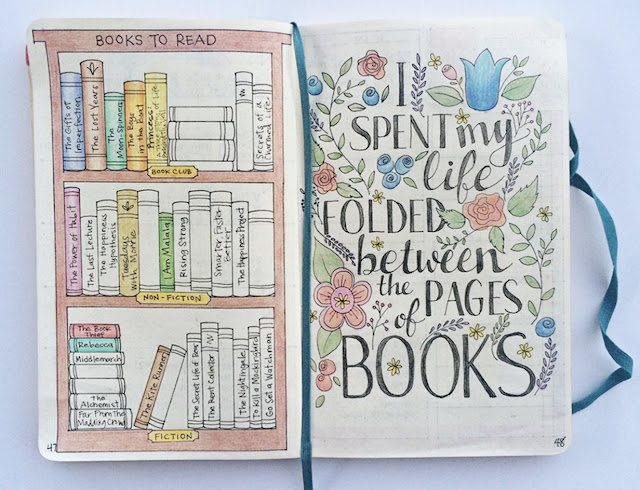 BOOKS TO READ
The Gifts of Imperfection
The Lost Years
The Moon-Spinners
The Boys in the Boat
Princess:
Secrets of a Charmed Life
BOOK CLUB
The Power of Habit
The Last Lecture
The Happiness Hypothesis
Tuesdays With Morrie
I Am Malala
Rising Strong
Smarter Faster Better
The Happiness Project
NON-FICTION
The Book Thief
Rebecca
Middlemarch
The Alchemist
Far From The Madding Crowd
The Kite Runner
The Secret Life of Bees
The Rent Collector
The Nightingale
To Kill a Mockingbird
Go Set a Watchman
FICTION
47
I
SPENT my
life
FOLDED
between
the PAGES
of
BOOKS
48